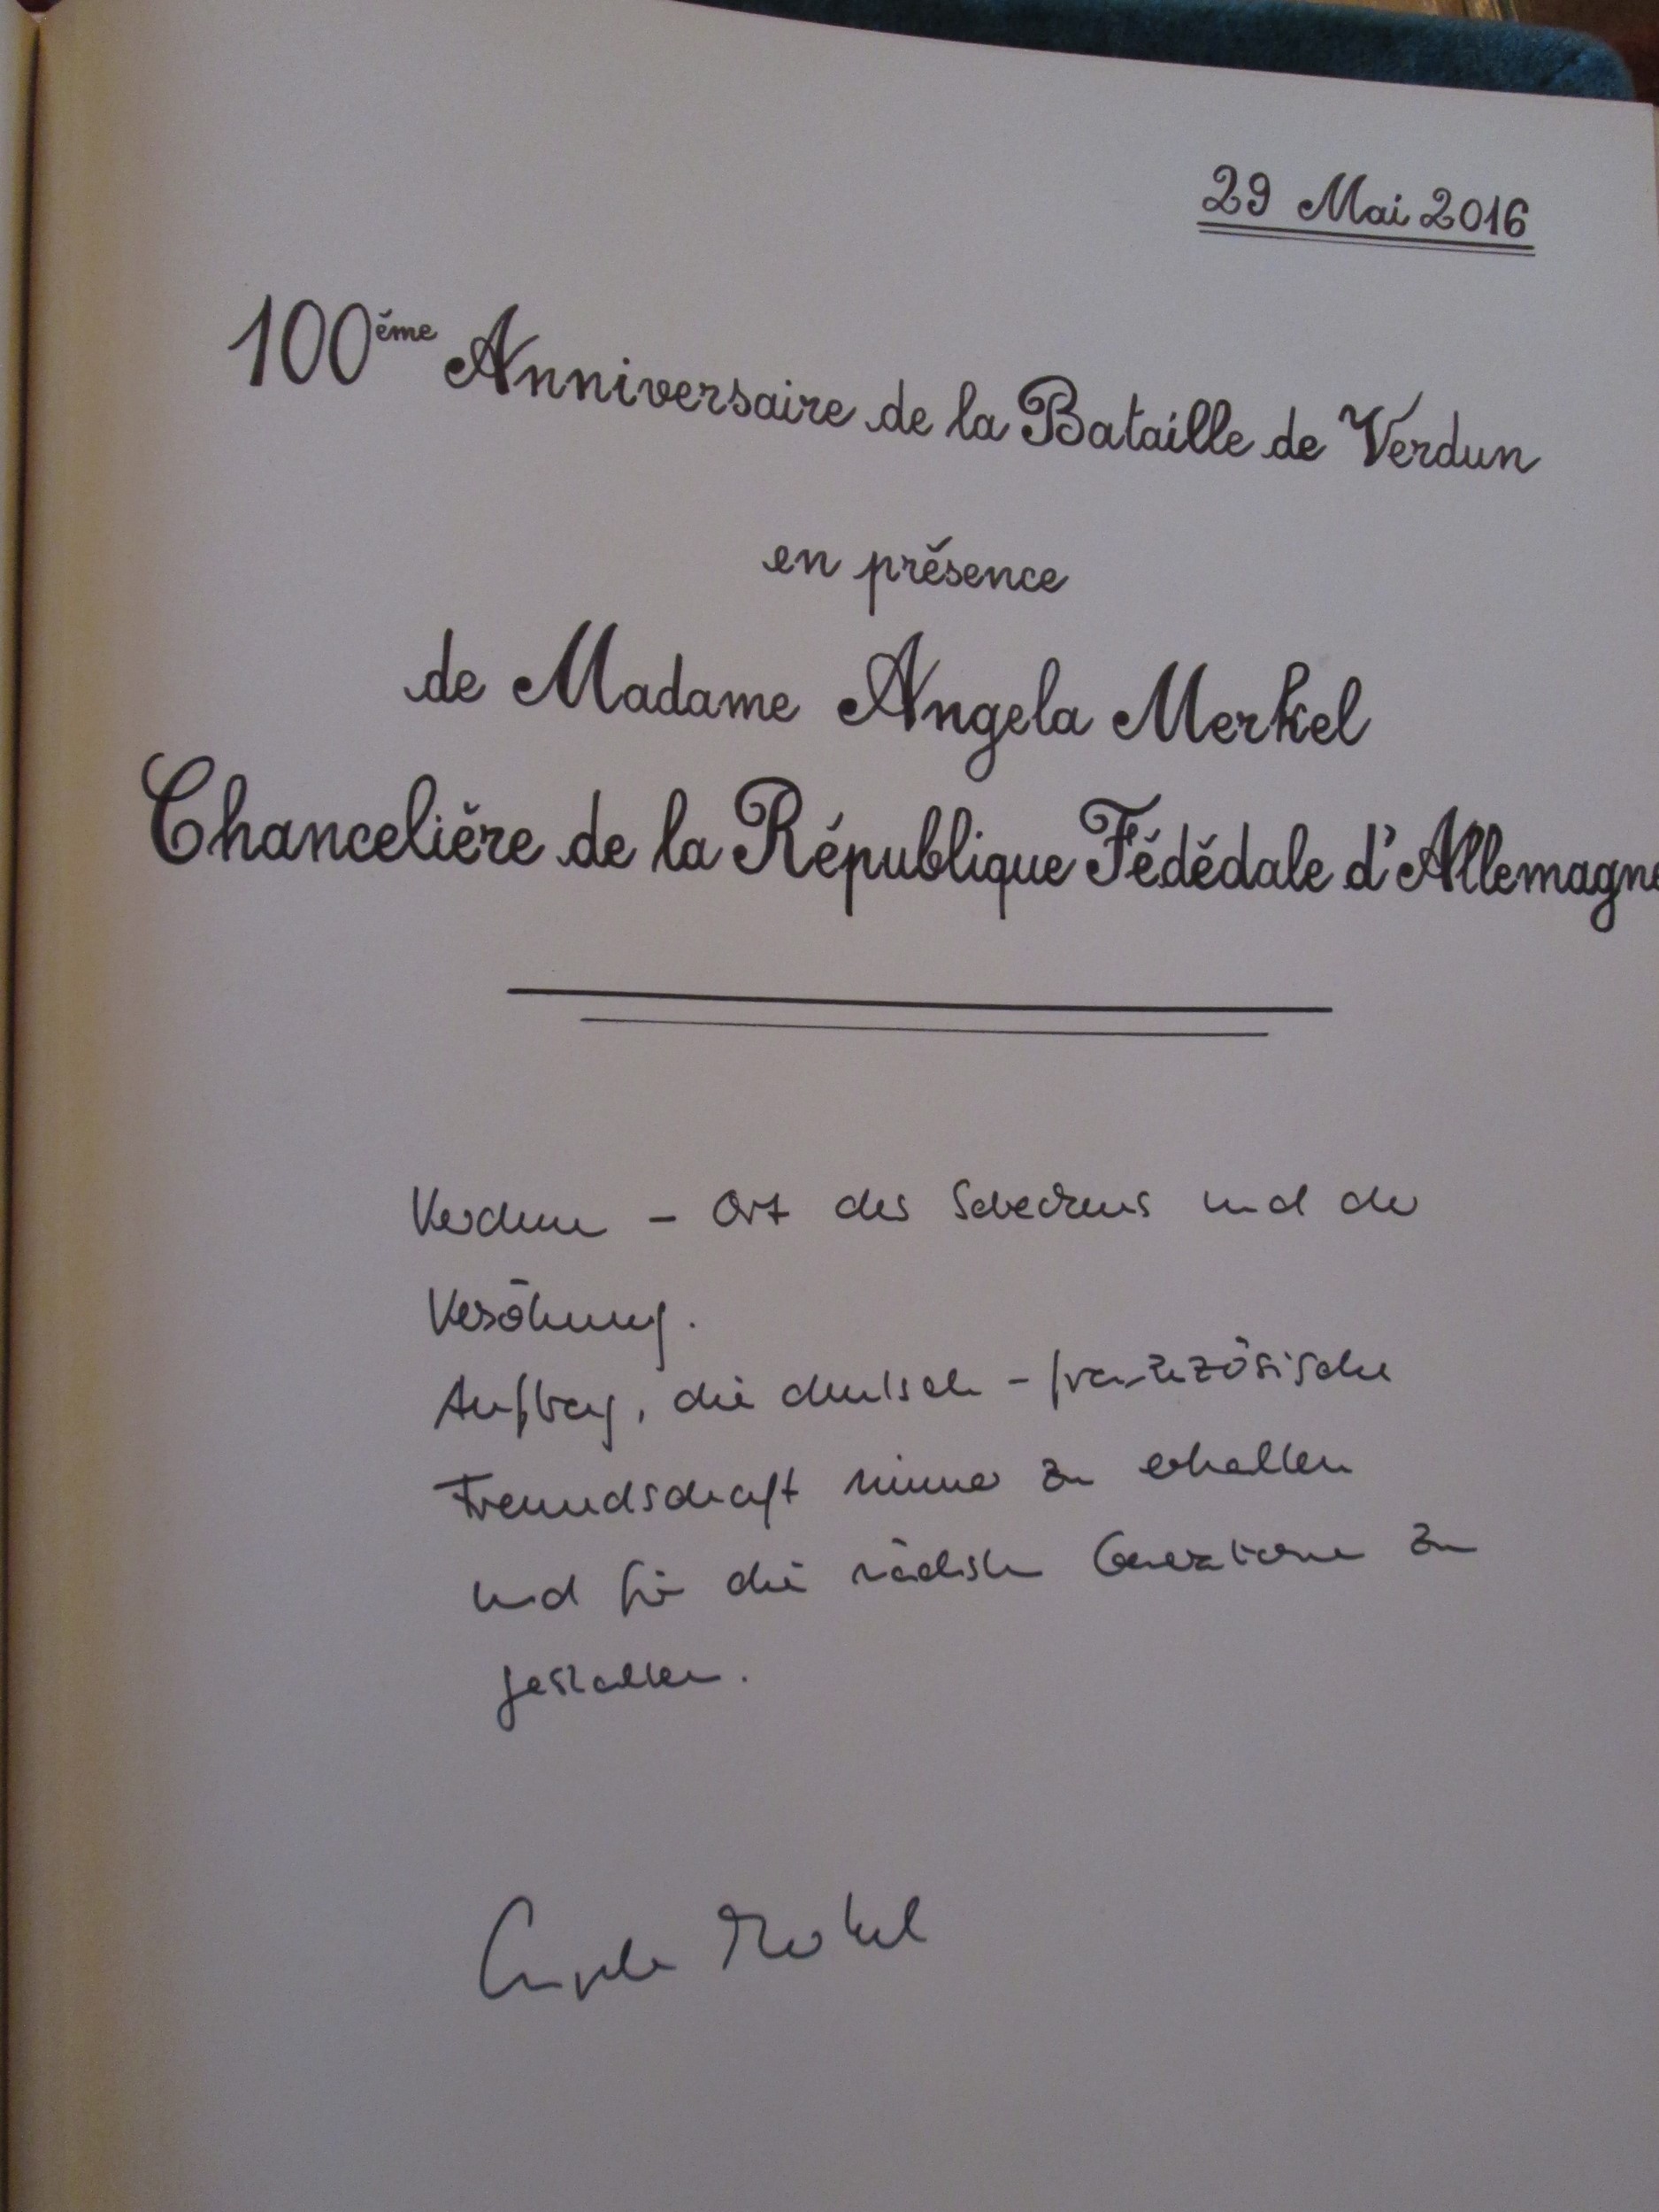 29 Mai 2016
100ème Anniversaire de la Bataille de Verdun
en présence
de Madame Angela Merkel
Chancelière de la République Fédédale d'Allemagne
Verdun – Ort des Schreckens und der
Versöhnung.
Auftrag, die deutsch-französische
Freundschaft immer zu erhalten
und für die nächsten Generationen zu
gestalten.
Angela Merkel